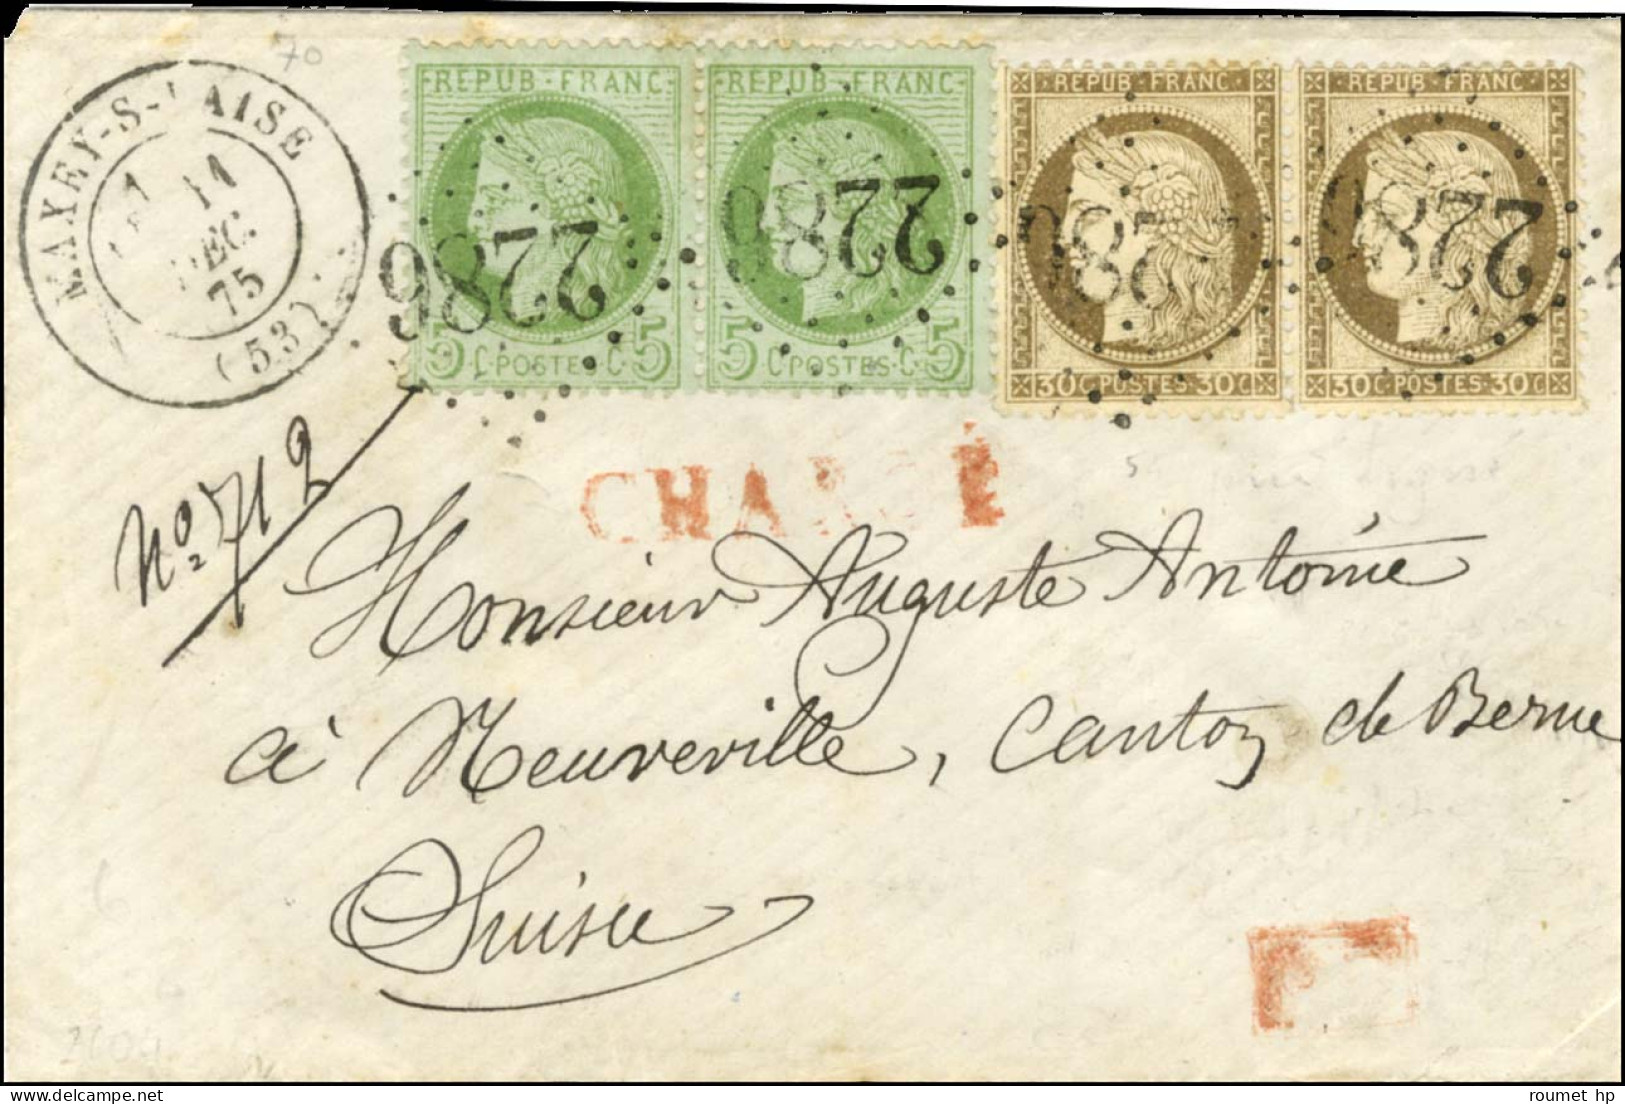 70
MAXEY-S-VAISE
11
DEC.
75
(53)
REPUB·FRANC·
REPUB·FRANC·
REPUB·FRANC·
REPUB·FRANC·
2286
2286
2286
228
5 C·POSTES·C·5
5 C·POSTES·C·5
30 C·POSTES·30 C
30 C·POSTES·30 C
CHARGÉ
No 712
Monsieur Auguste Antoine
à Neuveville, Canton de Berne
Suisse
roumet hp